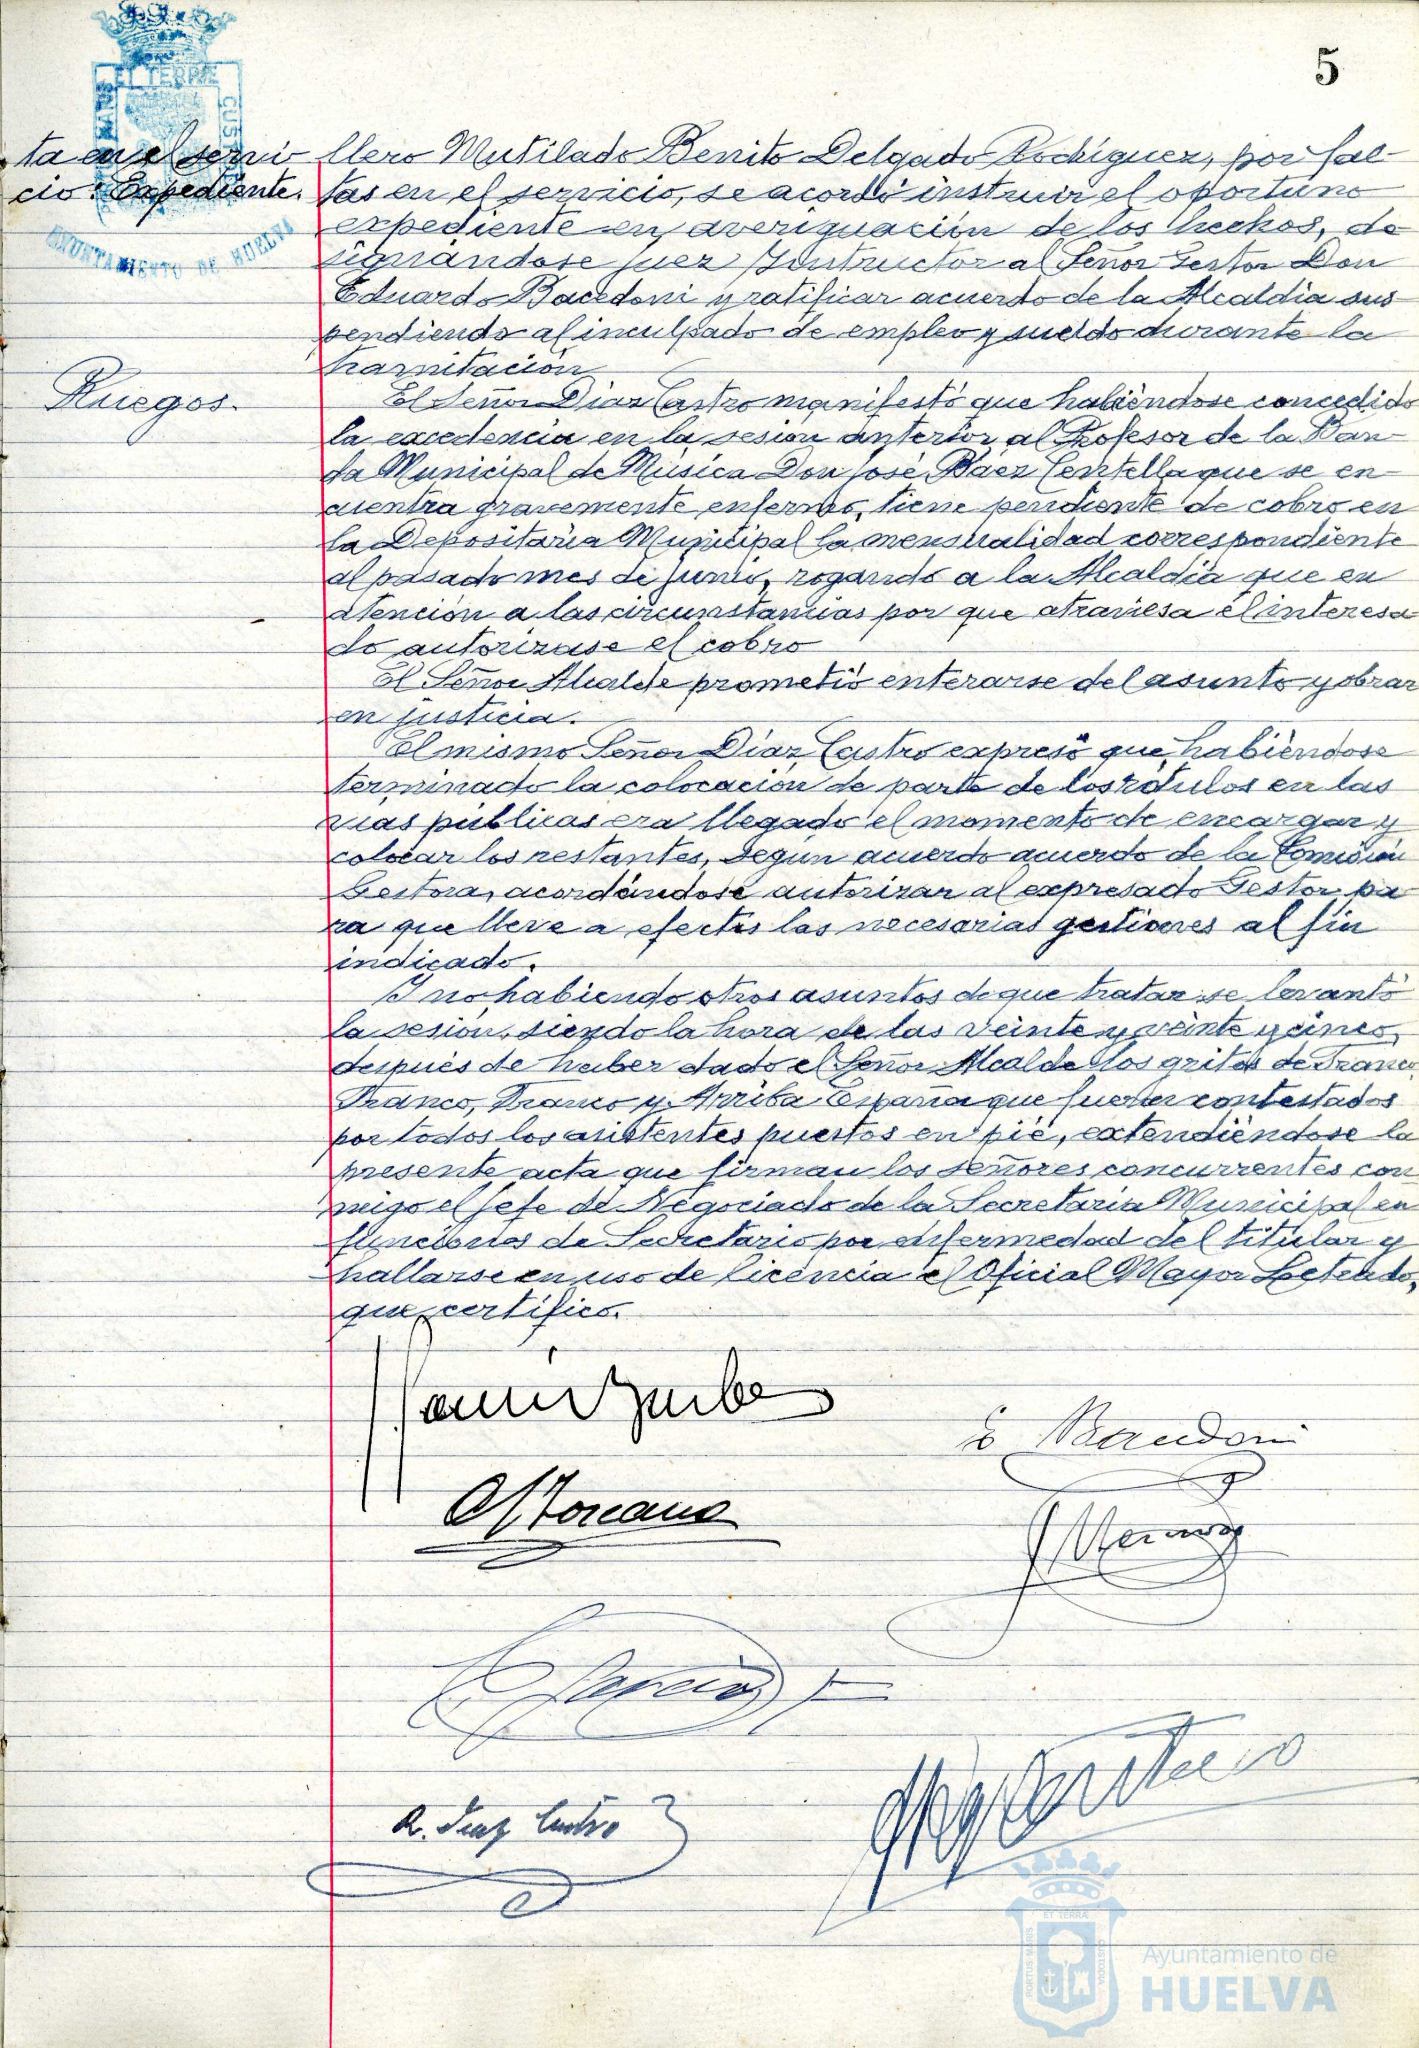 5
ET TERRE
CUS
AYUNTAMIENTO DE HUELVA
ta en el servi
cio: Expediente.
llero Mutilado Benito Delgado Rodriguez, por fal-
tas en el servicio, se acordó instruir el oportuno
expediente en averiguación de los hechos, de
signándose juez Instructor al Señor Gestor Don
Eduardo Bacedoni y ratificar acuerdo de la Alcaldia sus-
pendiendo al inculpado de empleo y sueldo durante la
tramitación
Ruegos.
El Señor Diaz Castro manifestó que habiéndose concedido
la excedencia en la sesión anterior al Profesor de la Ban-
da Municipal de Música Don José Báez Centella que se en-
cuentra gravemente enfermo, tiene pendiente de cobro en
la Depositaria Municipal la mensualidad correspondiente
al pasado mes de junio, rogando a la Alcaldia que en
atención a las circunstancias por que atraviesa el interesa-
do autorizase el cobro
El Señor Alcalde prometió enterarse del asunto y obrar
en justicia.
El mismo Señor Diaz Castro expresó que habiéndose
terminado la colocación de parte de los rótulos en las
vias públicas era llegado el momento de encargar y
colocar los restantes, según acuerdo acuerdo de la Comisión
Gestora, acordándose autorizar al expresado Gestor pa
ra que lleve a efectos las necesarias gestiones al fin
indicado.
Y no habiendo otros asuntos de que tratar se levantó
la sesión, siendo la hora de las veinte y veinte y cinco,
después de haber dado el Señor Alcalde los gritos de Franco,
Franco, Franco y Arriba España que fueron contestados
por todos los asistentes puestos en pié, extendiéndose la
presente acta que firman los señores concurrentes con
migo el Jefe de Negociado de la Secretaria Municipal en
funciones de Secretario por enfermedad del titular y
hallarse en uso de licencia el Oficial Mayor Letrado,
que certifico.
E Bacedoni
R. Diaz Castro
ET TERRA
PORTUS MARIS
CUSTODIA
Ayuntamiento de
HUELVA